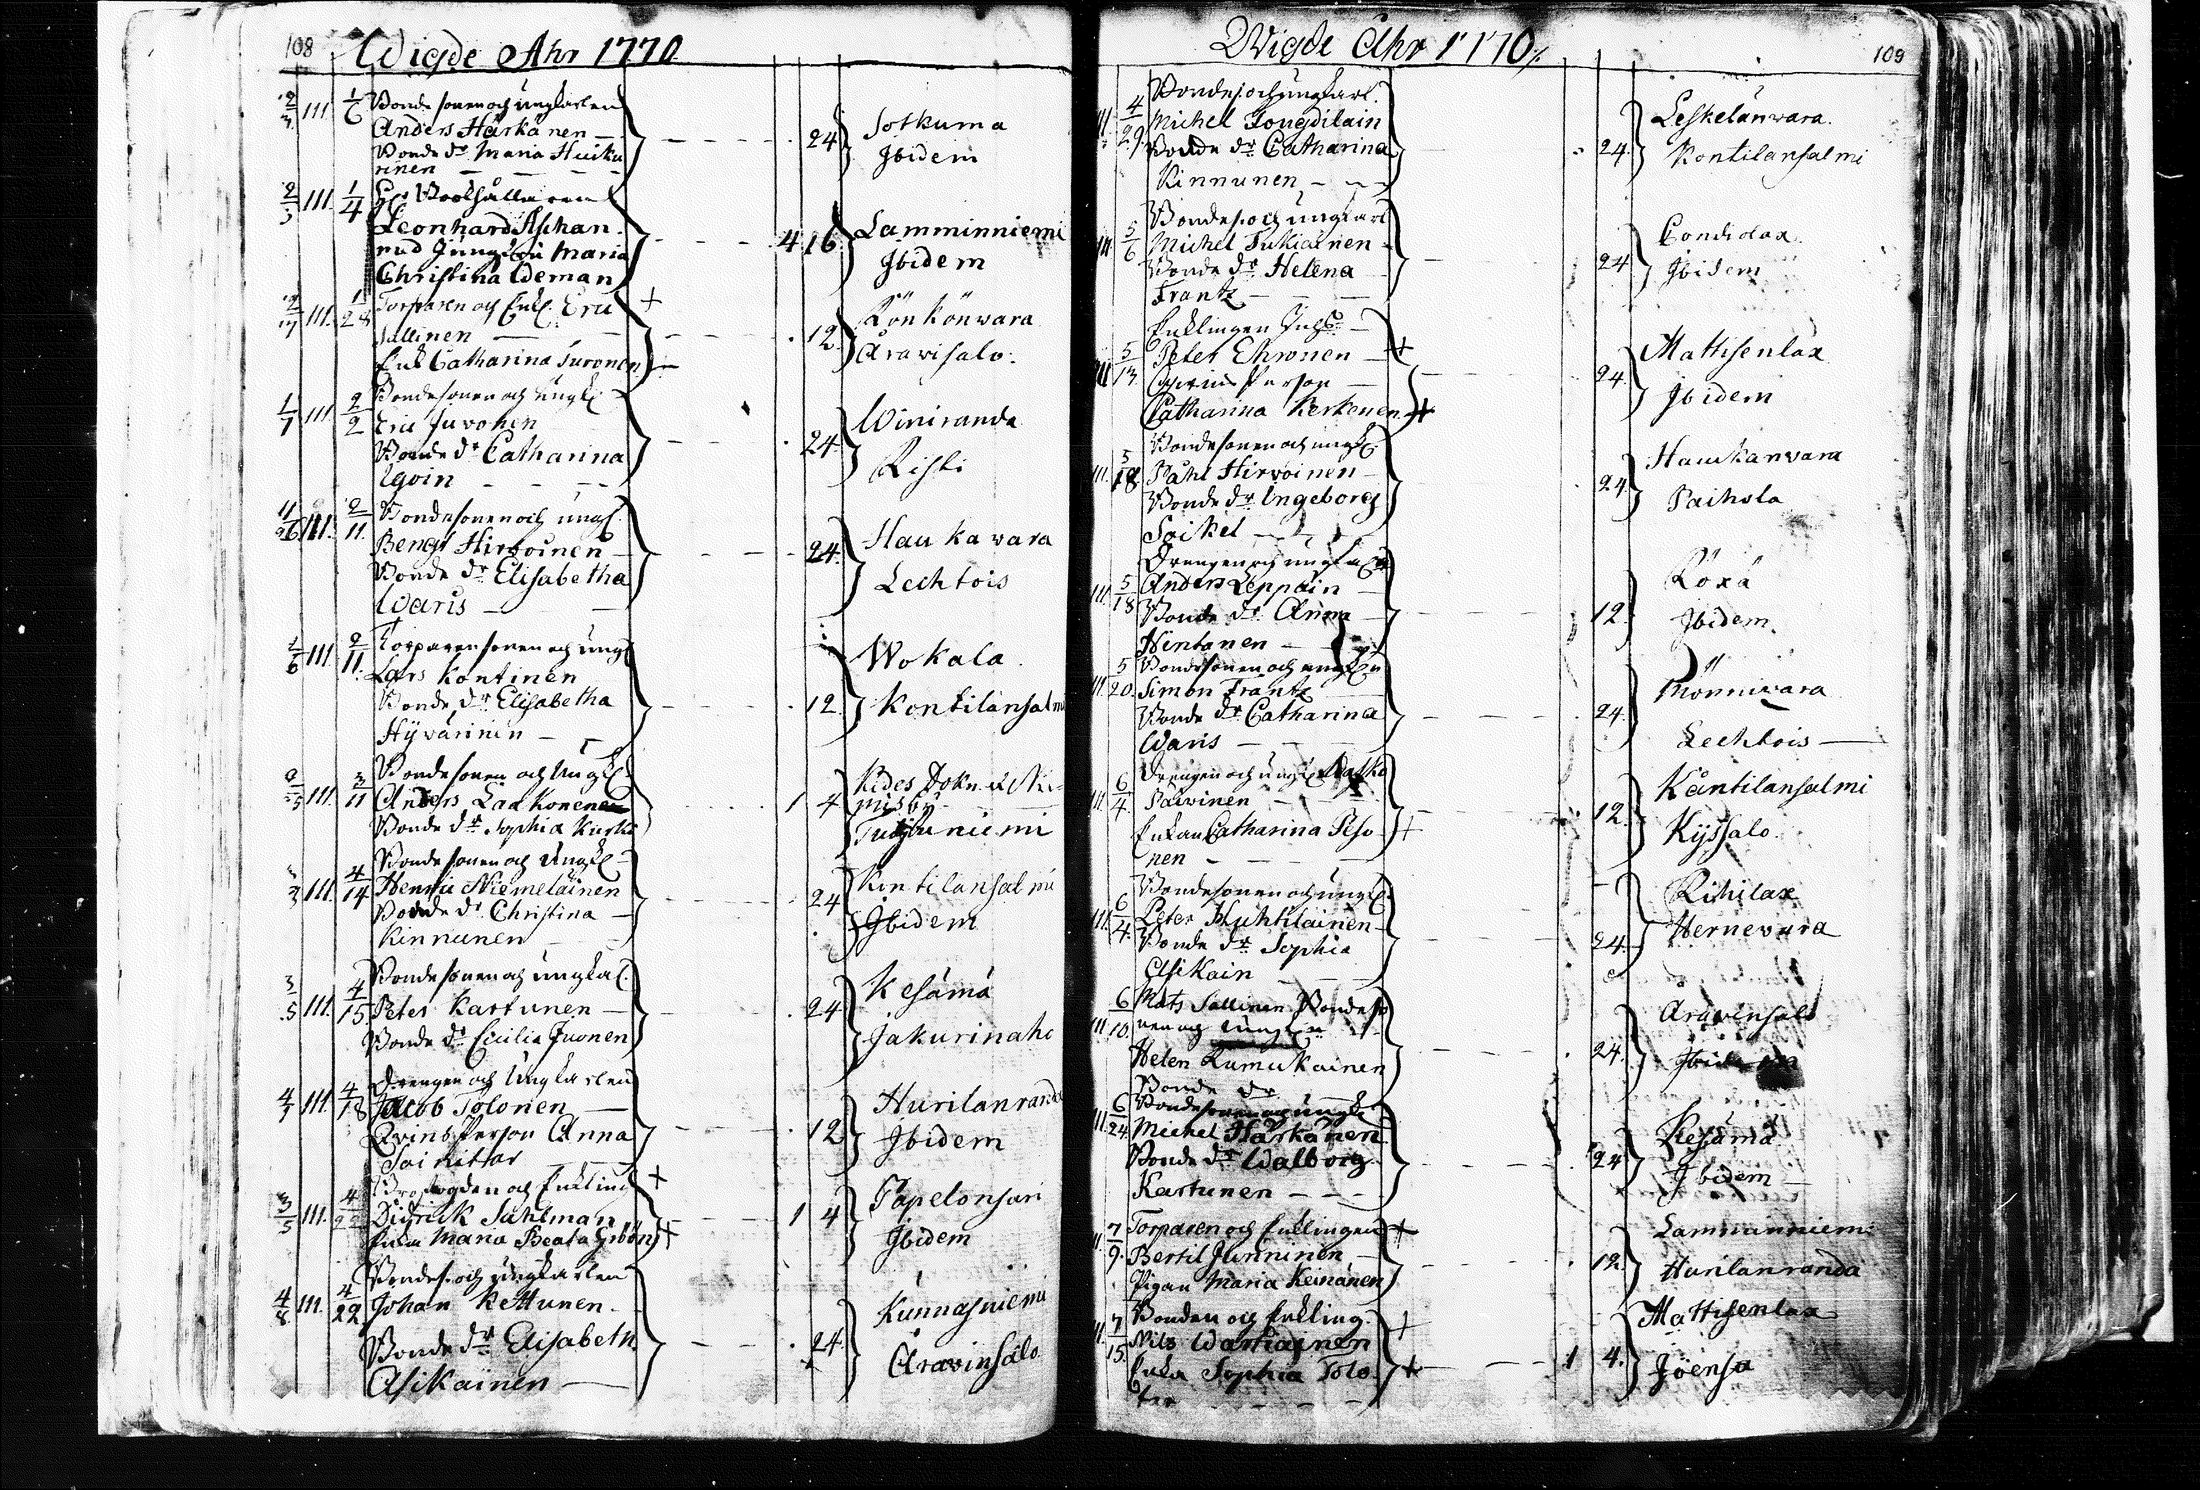 108 Wigde Åhr 1770.
2/3 111. 1/6 Bonde sonen och Ungkarlen
Anders Härkänen
Bonde dr Maria Huiku
rinen
24 Sotkuma
Ibidem
2/3 111. 1/4 Bokhållaren
Leonhard Aschan
med Jungfru Maria
Christina Ideman
4 16 Lamminniemi
Ibidem
111. 1/28 Torparen och Enkl. Eric +
Sallinen
Enk Catharina Turonen
12 Rönkönwara
Arawisalo.
1/7 111. 2/2 Bondesonen och Ungk.
Eric Juvonen
Bonde dr Catharina
Igoin
24 Winiranda
Risti
111. 2/11. Bondesonen och Ungk.
Bengt Hirvoinen
Bonde dr Elisabetha
Waris
24 Haukawara
Lechtois
111. 2/11. Torparensonen och Ungk
Lars Kontinen
Bonde dr Elisabetha
Hyvärinen
12 Wokala
Kontilansalmi
111. 3/11 Bondesonen och Ungk.
Anders Laakonen
Bonde dr Sophia Kurki
1 4 Kides Sokn
Tuopuniemi
111. 4/14 Bondesonen och Ungk.
Henric Niemeläinen
Bonde dr Christina
Kinnunen
24 Kontilansalmi
Ibidem
3/5 111. 4/15 Bondesonen och Ungkarl.
Peter Kartunen
Bonde dr Cicilia Juonen
24 Kesämä
Jakurinaho
4/1 111. 4/18 Drengen och Ungkarlen
Jacob Tolonen
Qvins Person Anna
Soirittar
12 Hurilanranda
Ibidem
3/5 111. 4/22 och Enkling +
Didrick Sahlman
Enka Maria Beata Grön +
1 4 Papelonsari
Ibidem
4/8 111. 4/22 Bondes. och Ungkarlen
Johan Kettunen
Bonde dr Elisabeth
Asikainen
24 Kunnasniemi
Arawinsalo
Wigde Åhr 1770/. 109
4/29. Bondes. och Ungkarl.
Michel Tougdilain
Bonde dr Catharina
Kinnunen
24 Leskelänwara.
Kontilansalmi
5/6 Bondes. och Ungkarl
Michel Tukiainen
Bonde dr Helena
Frantz
24 Condiolax.
Ibidem
5/13. Enklingen
Peter Ehronen +
Qvins Person
Catharina Kerkenen +
24 Mattisenlax
Ibidem
5/18 Bondesonen och Ungk.
Påhl Hirvoinen
Bonde dr Ingeborg
Soikel
24 Haukanwara
Paihola
5/18 Drengen och Ungkarl
Anders Leppäin
Bonde dr Anna
Hintanen
12 Röxä
Ibidem.
5/20. Bondesonen och Ungk.
Simon Frantz
Bonde dr Catharina
Waris
24 Mönniwara
Lechtois
6/4. Drengen och Ungk.
Päivinen
Enkan Catharina Peso +
nen
12 Kåntilansalmi
Kyssalo
6/4. Bondesonen och Ungk.
Peter Huhtilainen
Bonde dr Sophia
Asikain
24 Rihilax
Hernevara
6/10. Mats Sallinen Bondeso
nen och Ungk.
Helen Rumukainen
Bonde dr
24 Arawinsalo
Ibidem
6/24 Bondesonen och Ungk.
Michel Härkänen
Bonde dr Walborg
Kartunen
24 Kesämä
Ibidem
7/9. Torparen och Enklingen +
Bertil Junninen
Pigan Maria Keinänen
12 Lamminniemi
Hurilanranda
7/15. Bonden och Enkling. +
Nils Wartiainen
Enka Sophia Tolo +
1 4. Mattisenlax
Jöensu